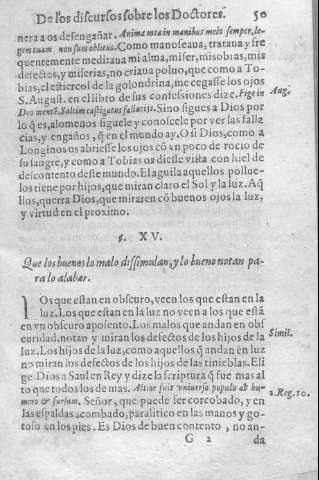 De los discursos sobre los Doctores. 50
nera a os desengañar. Anima mea in manibus meis semper, le-
gem tuam non sum oblitus. Como manoseaua, trataua y fre
quentemente mediraua mi alma, miser, mis obras, mis
defectos, y miserias, no criaua poluo, que como a To-
bias, el estiercol de la golondrina, me cegasse los ojos
S. August. en el libro de sus confessiones dize. Fige in Aug.
Deo mentē. Saltim castigatus fallaciis. Sino sigues a Dios por
lo q̃ es, alomenos siguele y conoscele por ver las falla
cias, y engaños, q̃ en el mundo ay. O si Dios, como a
Longinos os abriesse los ojos cō vn poco de rocio de
su sangre, y como a Tobias os diesse vista con hiel de
descontento deste mundo. El aguila aquellos pollue-
los tiene por hijos, que miran claro el Sol y la luz. Aq̃
llos, querra Dios, que miraren cō buenos ojos la luz,
y virtud en el proximo.
§. XV.
Que los buenos lo malo dissimulan, y lo bueno notan pa-
ra lo alabar.
LOs que estan en obscuro, veen los que estan en la
luz. Los que estan en la luz no veen a los que estā
en vn obscuro aposento. Los malos que andan en obs
curidad, notan y miran los defectos de los hijos de la Simil.
luz. Los hijos de la luz, como aquellos q̃ andan en luz
no miran los defectos de los hijos de las tinieblas. Eli
ge Dios a Saul en Rey y dize la scriptura q̃ fue mas al
to que todos los de mas. Altior fuit vniuerso populo ab hu- 1. Reg. 10.
mero & sursum. Señor, que puede ser corcobado, y en
las espaldas acombado, paralitico en las manos y go-
toso en los pies. Es Dios de buen contento, no an-
G 2 da